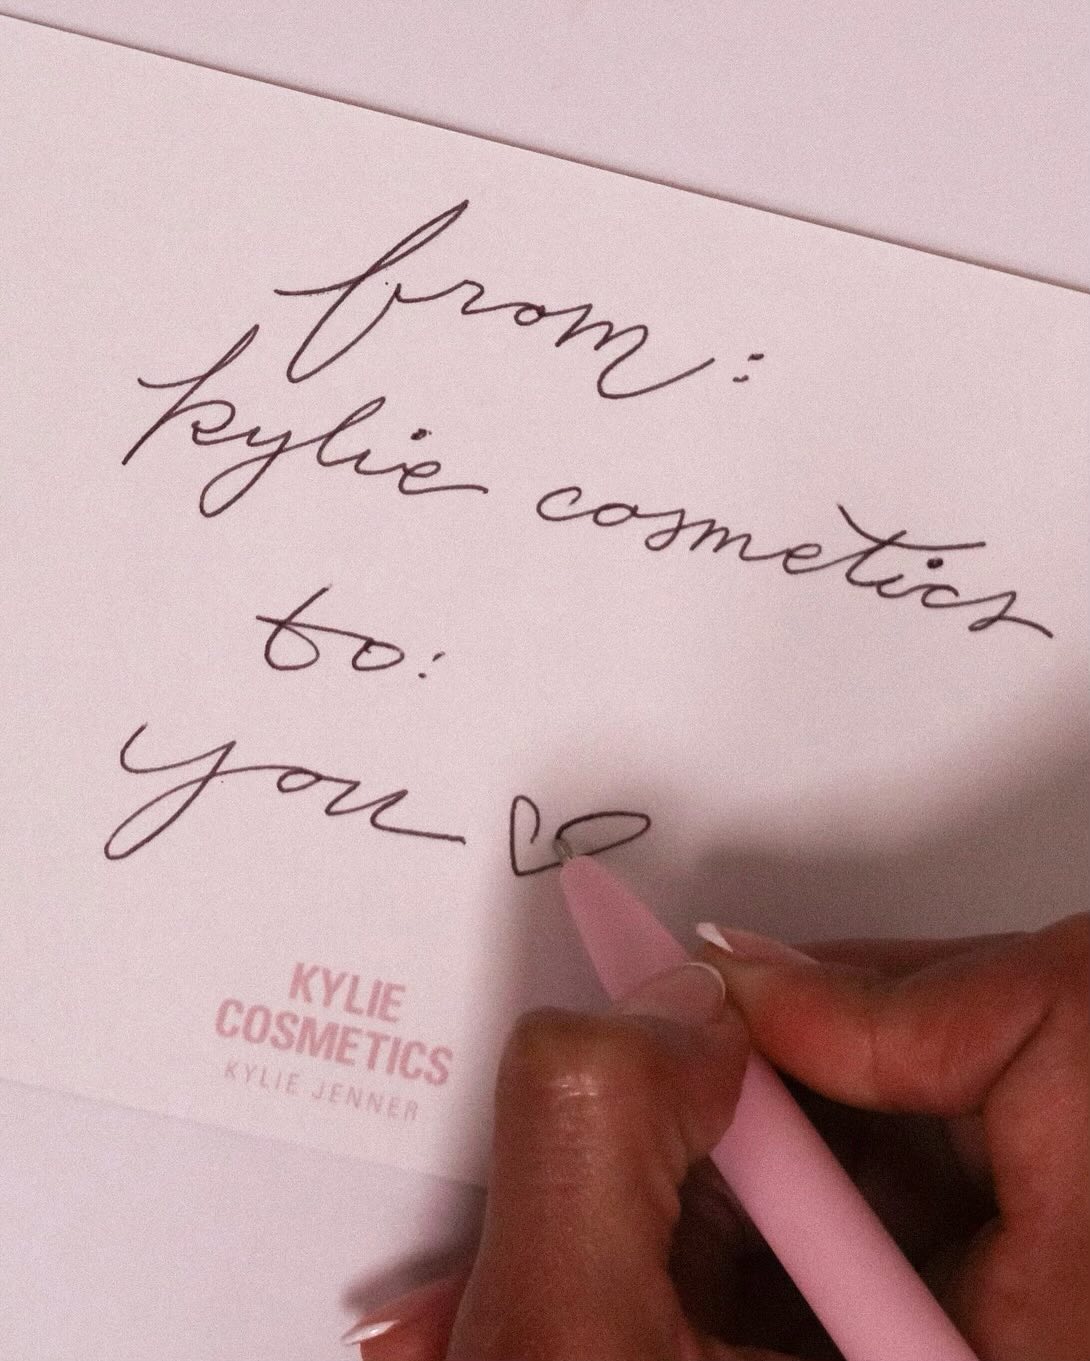 from:
kylie cosmetics
to:
you ♡
KYLIE
COSMETICS
KYLIE JENNER